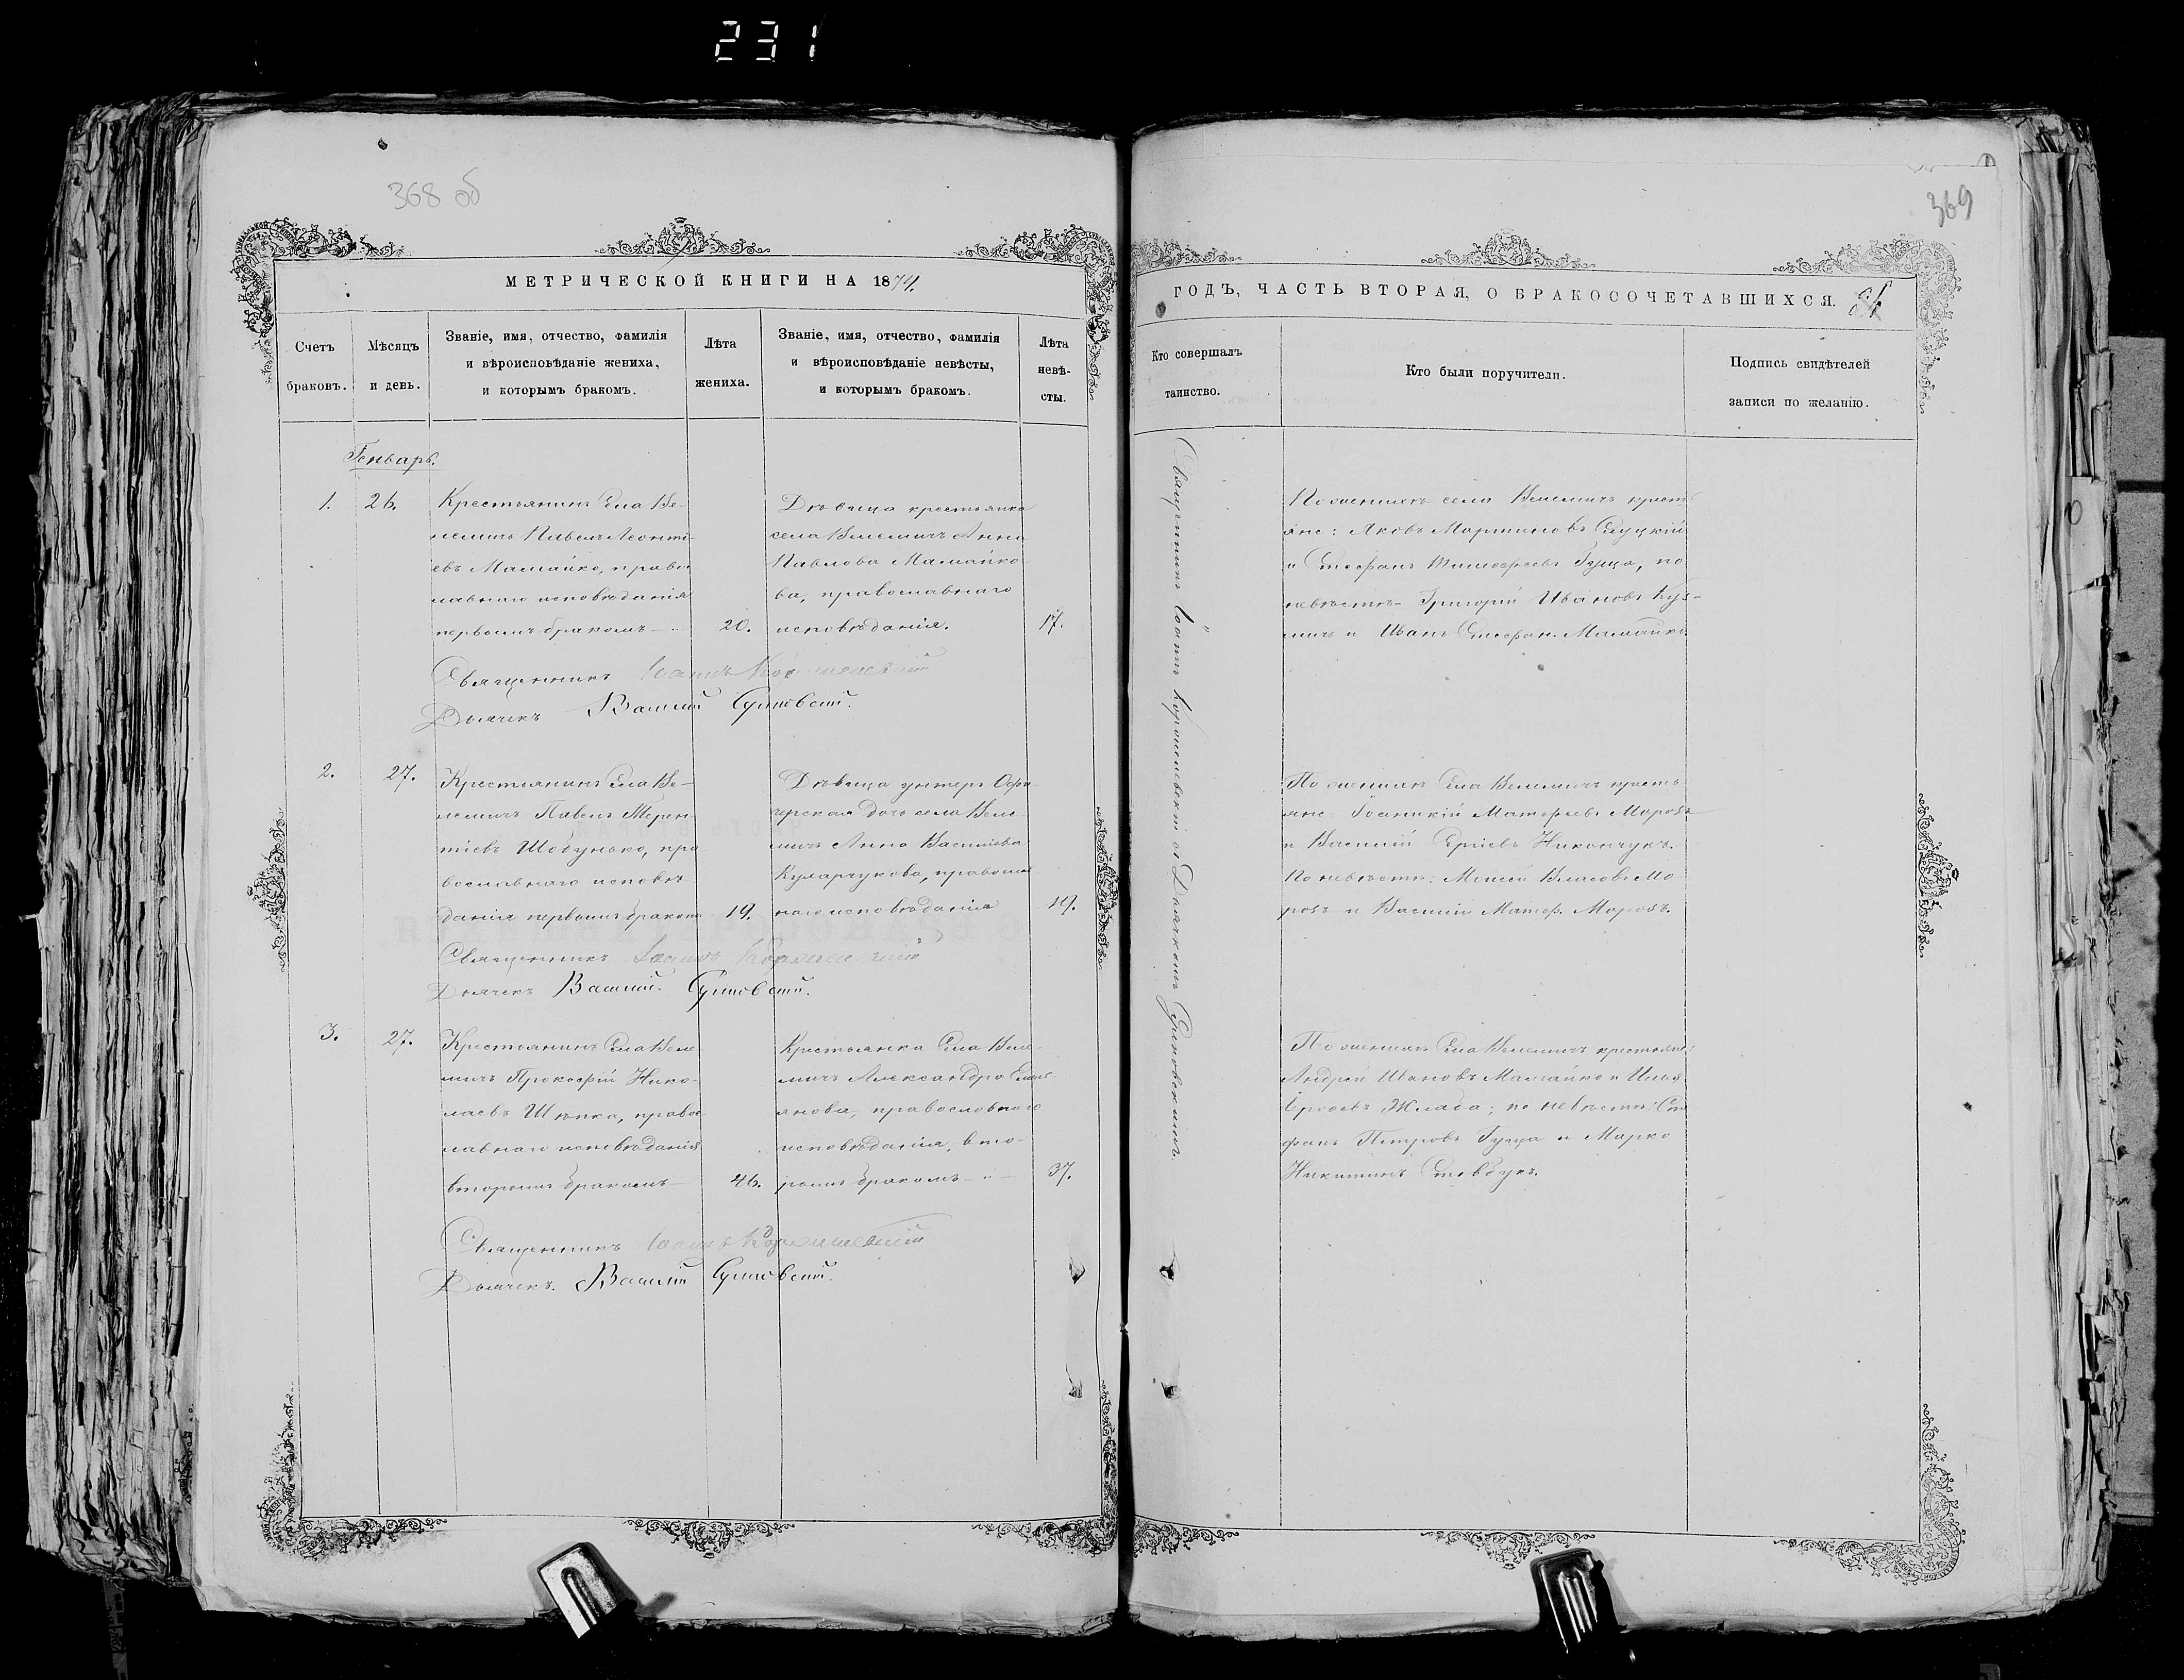 231
368 об
369
МЕТРИЧЕСКОЙ КНИГИ НА 1874.
Счетъ браковъ.
Мѣсяцъ и день.
Званіе, имя, отчество, фамилія
и вѣроисповѣданіе жениха,
и которымъ бракомъ.
Лѣта жениха.
Званіе, имя, отчество, фамилія
и вѣроисповѣданіе невѣсты,
и которымъ бракомъ.
Лѣта невѣ-
сты.
Генварь.
1. 26.
Крестьянинъ села Ве-
лемичъ Павелъ Леонті-
евъ Мамайко, правос
лавнаго исповѣданія
первымъ бракомъ
20.
Дѣвица крестьянка
села Велемичъ Анна
Павлова Мамайко
ва, православнаго
исповѣданія.
17.
Священникъ Іоаннъ
Дьячекъ Василій
2. 27.
Крестьянинъ села Ве-
лемичъ Павелъ Терен
тіевъ Шобунько, пра
вославнаго исповѣ
данія первымъ бракомъ
19.
Дѣвица унтеръ Офи
церская дочь села Веле
мичъ Анна Василіева
православ
наго исповѣданія
19.
Священникъ Іоаннъ
Дьячекъ Василій
3. 27.
Крестьянинъ села Веле
мичъ Прокофій Нико-
лаевъ правос
лавнаго исповѣданія
вторымъ бракомъ
46.
Крестьянка села Веле-
мичъ Александра Емел-
янова, православнаго
исповѣданія, вто-
рымъ бракомъ
37.
Священникъ Іоаннъ
Дьячекъ. Василій
ГОДЪ, ЧАСТЬ ВТОРАЯ, О БРАКОСОЧЕТАВШИХСЯ.
Кто совершалъ
таинство.
Кто были поручители.
Подпись свидѣтелей
записи по желанію.
Священникъ Іоаннъ съ Дьячкомъ
По женихѣ села Велемичъ крестъ
яне: Яковъ Мартиновъ Слуцкій
и Стефанъ Тимофеевъ Гуща, по
невѣстѣ Григорій Ивановъ Куз-
мичъ и Иванъ Стефан. Мамайко.
По женихѣ села Велемичъ кресть
яне: Іоаникій Матфеевъ Морозъ
и Василій Никончукъ.
По невѣстѣ: Моисей Власовъ Мо
розъ и Василій Матф. Морозъ.
По женихѣ села Велемичъ крестьяне:
Андрей Ивановъ Мамайко и Илья
Жлаба; по невѣстѣ: Сте
фанъ Петровъ Гуща и Марко
Никитинъ Стовбукъ.